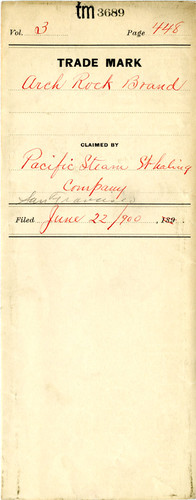 tm 3689
Vol. 3 Page 448
TRADE MARK
Arch Rock Brand
CLAIMED BY
Pacific Steam Whaling
Company
San Francisco
Filed June 22/900, 189 .